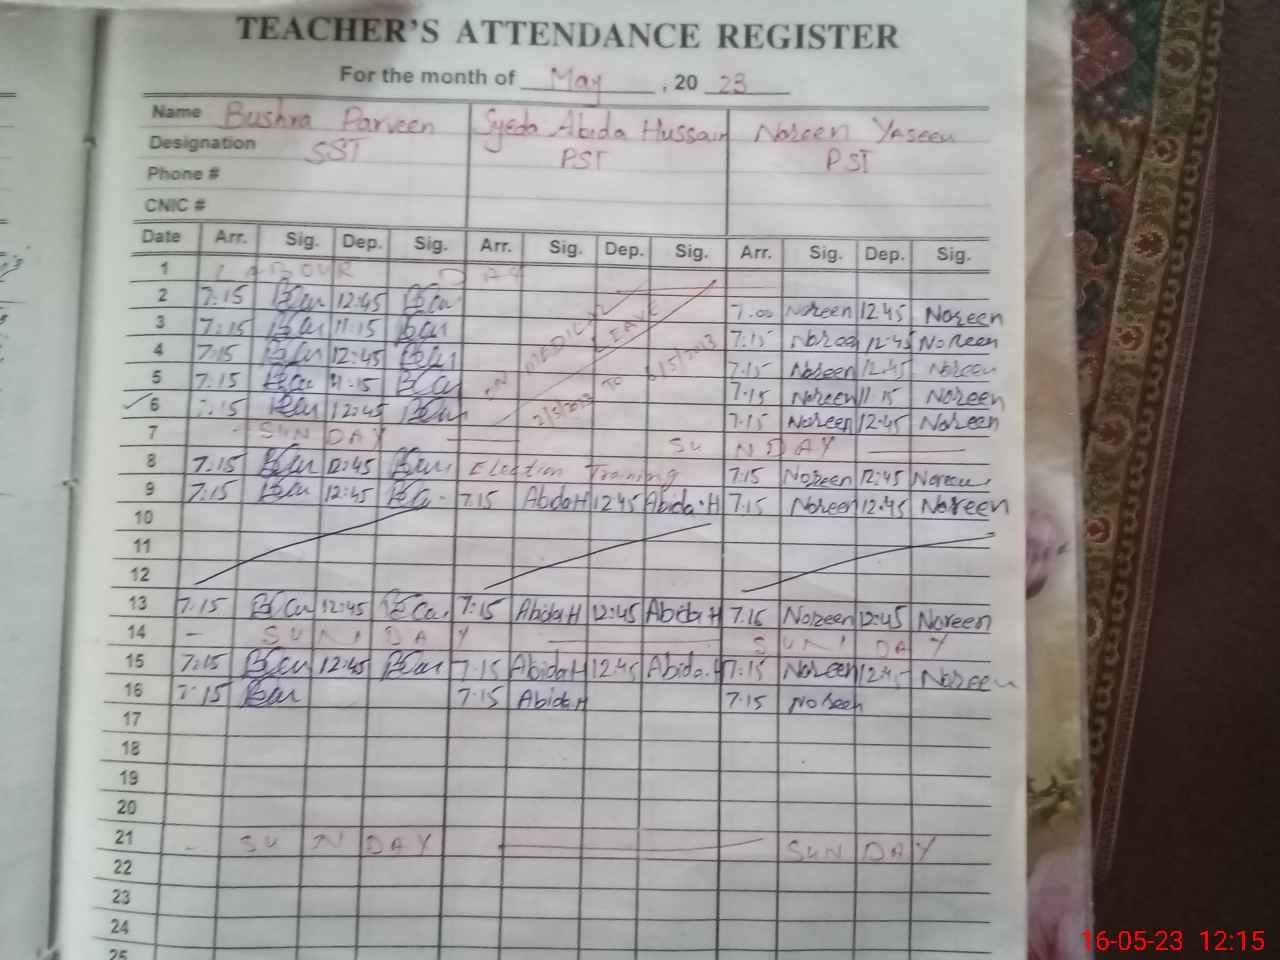 TEACHER'S ATTENDANCE REGISTER
For the month of May, 2023
Name Bushra Parveen Syeda Abida Hussain Noreen Yaseen
Designation SST PST PST
Phone #
CNIC #
Date Arr. Sig. Dep. Sig. Arr. Sig. Dep. Sig. Arr. Sig. Dep. Sig.
1 LABOUR DAY
2 7:15 12:45 7.00 Noreen 12:45 Noreen
3 7:15 11:15 7:15 Noreen 12:45 Noreen
4 7:15 12:45 7:15 Noreen 12:45 Noreen
5 7:15 11:15 7:15 Noreen 11:15 Noreen
6 7:15 12:45 7:15 Noreen 12:45 Noreen
ON MEDICAL LEAVE
2/5/2023 TO 6/5/2023
7 SUNDAY SUNDAY
8 7:15 12:45 Election Training 7:15 Noreen 12:45 Noreen
9 7:15 12:45 7:15 Abida H 12:45 Abida.H 7:15 Noreen 12:45 Noreen
10
11
12
13 7:15 12:45 7:15 Abida H 12:45 Abida H 7:15 Noreen 12:45 Noreen
14 SUNDAY SUNDAY
15 7:15 12:45 7:15 Abida H 12:45 Abida.H 7:15 Noreen 12:45 Noreen
16 7:15 7:15 Abida H 7:15 Noreen
17
18
19
20
21 SUNDAY SUNDAY
22
23
24
25
16-05-23 12:15